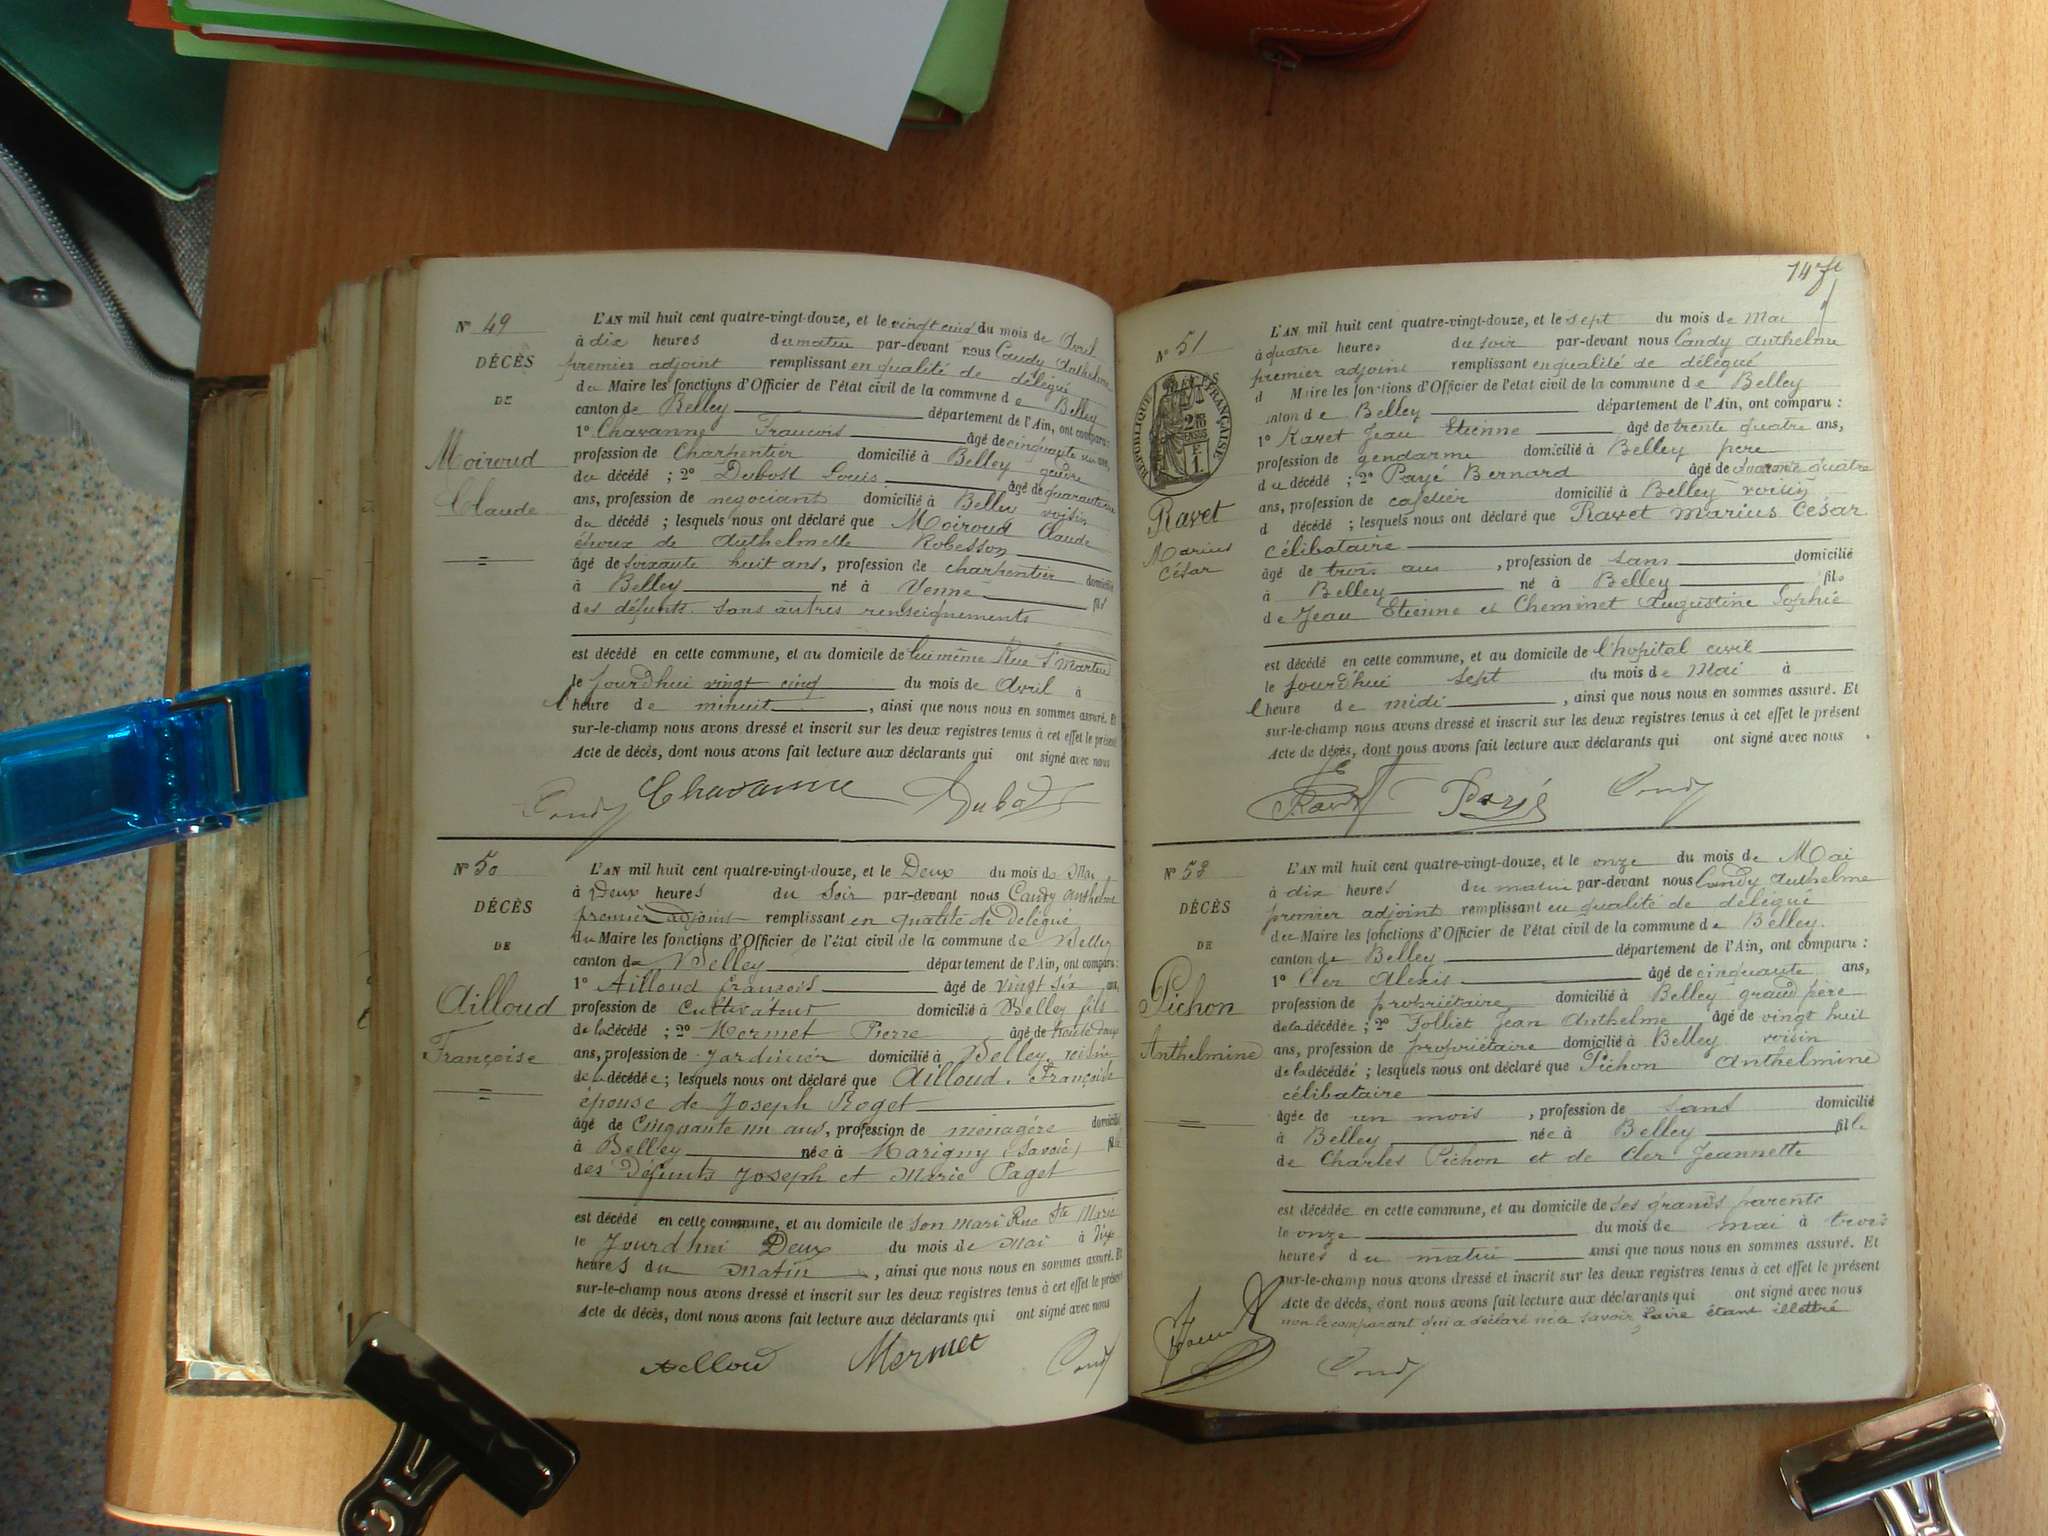 N° 49
DÉCÈS
DE
Moiroud
Claude
L'AN mil huit cent quatre-vingt-douze, et le vingt cinq du mois de Avril
à dix heures du matin par-devant nous Candy Anthelme
premier adjoint remplissant en qualité de délégué
du Maire les fonctions d'Officier de l'état civil de la commune de Belley
canton de Belley département de l'Ain, ont comparu :
1° Chavanne Francois âgé de cinquante ans,
profession de Charpentier domicilié à Belley gendre
du décédé ; 2° Dubost Louis âgé de quarante
ans, profession de négociant domicilié à Belley voisin
du décédé ; lesquels nous ont déclaré que Moiroud Claude
époux de Anthelmette Robesson
âgé de soixante huit ans, profession de charpentier domicilié
à Belley né à Yenne fils
des défunts sans autres renseignements
est décédé en cette commune, et au domicile de lui même Rue St Martin
le jourdhui vingt cinq du mois de Avril à
l'heure de minuit, ainsi que nous nous en sommes assuré. Et
sur-le-champ nous avons dressé et inscrit sur les deux registres tenus à cet effet le présent
Acte de décès, dont nous avons fait lecture aux déclarants qui ont signé avec nous
Candy Chavanne Dubost
N° 50
DÉCÈS
DE
Ailloud
Françoise
L'AN mil huit cent quatre-vingt-douze, et le Deux du mois de Mai
à Deux heures du Soir par-devant nous Candy Anthelme
premier adjoint remplissant en qualité de Délégué
du Maire les fonctions d'Officier de l'état civil de la commune de Belley
canton de Belley département de l'Ain, ont comparu :
1° Ailloud françois âgé de vingt six ans,
profession de Cultivateur domicilié à Belley fils
de la décédé ; 2° Mermet Pierre âgé de trente deux
ans, profession de Jardinier domicilié à Belley, voisin
de la décédée ; lesquels nous ont déclaré que Ailloud. Françoise
épouse de Joseph Roget
âgé de Cinquante un ans, profession de ménagère domicilié
à Belley née à Marigny (Savoie) fille
des Défunts Joseph et Marie Paget
est décédé en cette commune, et au domicile de son mari Rue Ste Marie
le Jourdhui Deux du mois de Mai à Dix
heures du matin, ainsi que nous nous en sommes assuré. Et
sur-le-champ nous avons dressé et inscrit sur les deux registres tenus à cet effet le présent
Acte de décès, dont nous avons fait lecture aux déclarants qui ont signé avec nous
Aellou Mermet Candy
N° 51
DÉCÈS
RÉPUBLIQUE FRANÇAISE
Ravet
Marius
César
L'AN mil huit cent quatre-vingt-douze, et le sept du mois de Mai
à quatre heures du soir par-devant nous Candy Anthelme
premier adjoint remplissant en qualité de délégué
d Maire les fonctions d'Officier de l'état civil de la commune de Belley
canton de Belley département de l'Ain, ont comparu :
1° Ravet Jean Etienne âgé de trente quatre ans,
profession de gendarme domicilié à Belley père
du décédé ; 2° Payé Bernard âgé de quarante quatre
ans, profession de cafetier domicilié à Belley voisin
d décédé ; lesquels nous ont déclaré que Ravet Marius César
célibataire
âgé de trois ans, profession de sans domicilié
à Belley né à Belley fils
de Jean Etienne et Cheminet Augustine Sophie
est décédé en cette commune, et au domicile de l'hopital civil
le jourdhui sept du mois de Mai à
l'heure de midi, ainsi que nous nous en sommes assuré. Et
sur-le-champ nous avons dressé et inscrit sur les deux registres tenus à cet effet le présent
Acte de décès, dont nous avons fait lecture aux déclarants qui ont signé avec nous
Ravet Payé Candy
N° 52
DÉCÈS
DE
Pichon
Anthelmine
L'AN mil huit cent quatre-vingt-douze, et le onze du mois de Mai
à dix heures du matin par-devant nous Candy Anthelme
premier adjoint remplissant en qualité de délégué
du Maire les fonctions d'Officier de l'état civil de la commune de Belley
canton de Belley département de l'Ain, ont comparu :
1° Cler Alexis âgé de cinquante ans,
profession de propriétaire domicilié à Belley grand père
de la décédée ; 2° Folliet Jean Anthelme âgé de vingt huit
ans, profession de propriétaire domicilié à Belley voisin
de la décédée ; lesquels nous ont déclaré que Pichon Anthelmine
célibataire
âgée de un mois, profession de sans domicilié
à Belley née à Belley fille
de Charles Pichon et de Cler Jeannette
est décédée en cette commune, et au domicile de ses grands parents
le onze du mois de mai à trois
heures du matin ainsi que nous nous en sommes assuré. Et
sur-le-champ nous avons dressé et inscrit sur les deux registres tenus à cet effet le présent
Acte de décès, dont nous avons fait lecture aux déclarants qui ont signé avec nous
non le comparant qui a déclaré ne le savoir faire étant illettré
Candy